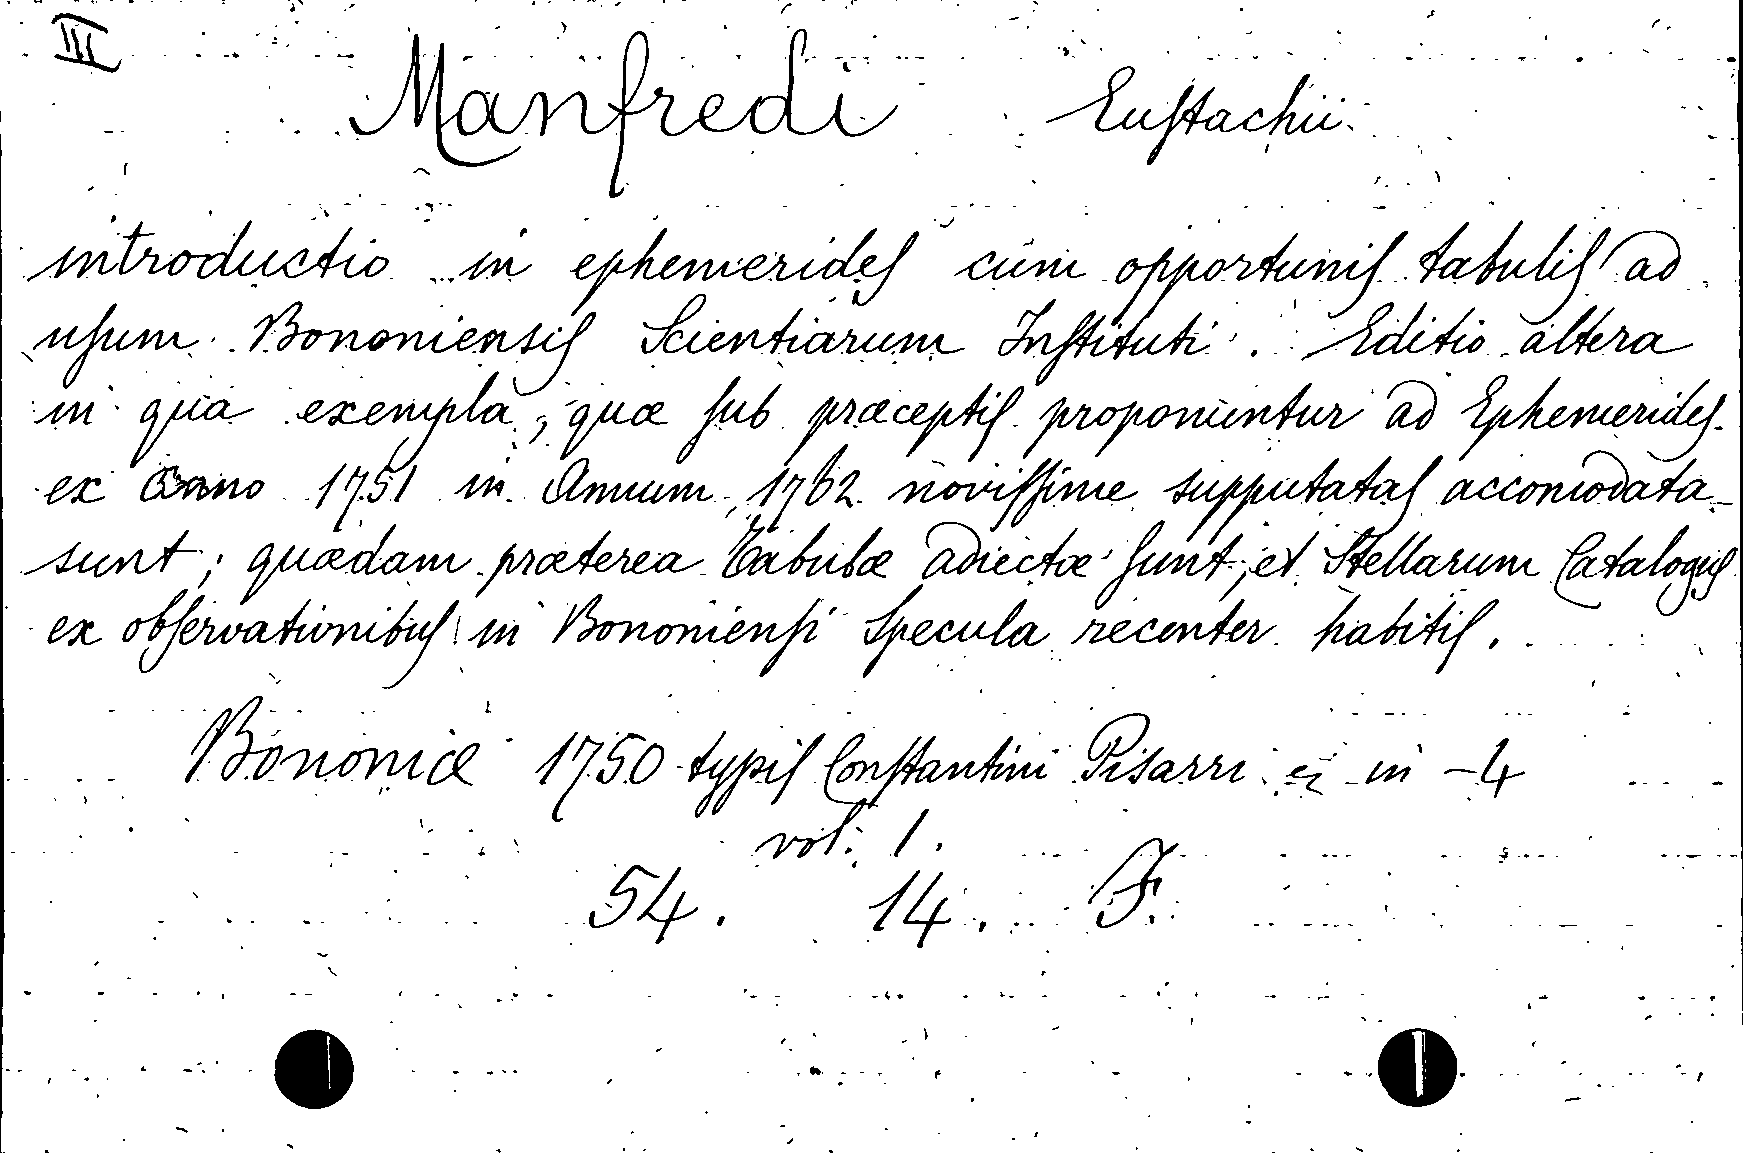 III
Manfredi Eustachii
introductio in ephemerides cum opportunis tabulis ad
usum Bononiensis Scientiarum Instituti. Editio altera
in qua exempla, quæ sub præceptis proponuntur ad Ephemerides
ex anno 1751 in Annum 1762 novissime supputatas accomodata
sunt; quædam præterea Tabulæ adiectæ sunt, et Stellarum Catalogus
ex observationibus in Bononiensi Specula recenter habitis.
Bononiæ 1750 typis Constantini Pisarri in -4
vol: 1.
54. 14. F.